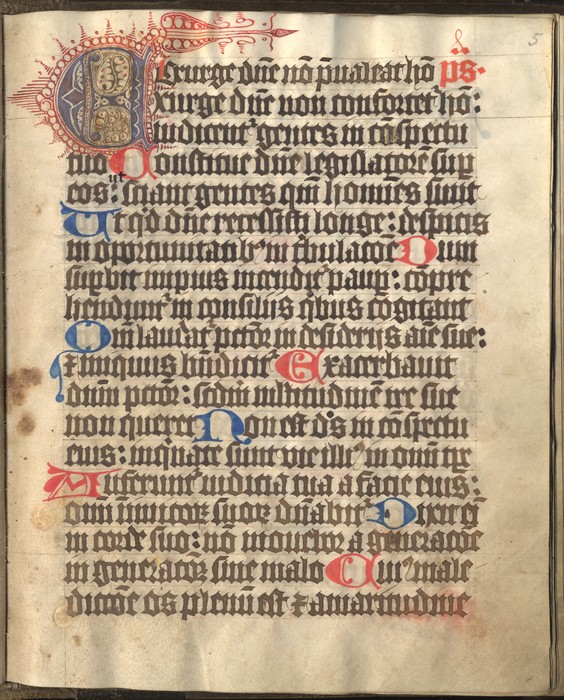 Exurge dñe nõ p̃ualeat hõ ps.
Exurge dñe non confortet᷑ hõ:
iudicent᷑ gentes in cõspectu
tuo Constitue dñe legislatorẽ sup̃
eos: ut sciant gentes qm̃ homĩes sunt
Ut qͥd dñe recessisti longe: despicis
in oportunitatib᷒ in tribulatõe Dum
supbit impius incendit᷑ paup̃: cõpre
hendunt᷑ in cõsilijs qͥbus cogitant
Qm̃ laudat᷑ pctõr in desiderijs aĩe sue:
⁊ iniquus bñdicit᷑ Exacerbauit
dñm pctõr: scdm̃ multitudinẽ ire sue
non queret Non est d̃s in cõspectu
eius: inquinate sunt vie illi᷒ in omni tp̃r
Auferunt᷑ iudicia tua a facie eius:
om̃i inimicoꝝ suoꝝ dñabit᷑ Dixit em̃
in corde suo: nõ mouebor a generatõe
in generatõꝫ sine malo Cui᷒ male
dictõe os plenũ est ⁊ amaritudine
5